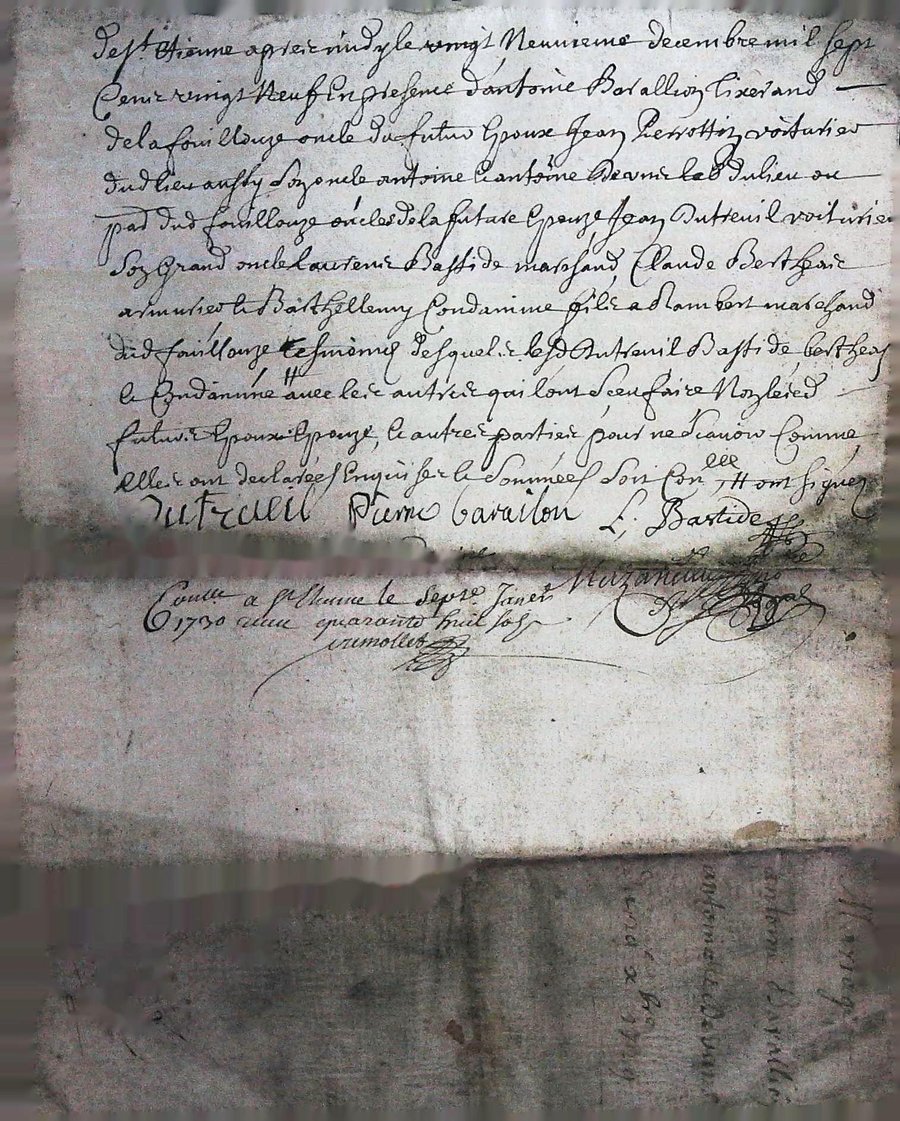 de st. Etienne apres midy le vingt Neuvieme decembre mil sept
Cens vingt Neuf En presence d'antoine Barallion tixerand
de la fouillouze oncle du futur Epoux Jean Pierrottin voiturier
dud lieu aussy son oncle antoine & antoine lab du lieu ou
par dud fouillouze oncles de la future Epouze, Jean Dutreuil voiturier
Son Grand oncle laurens Bastide marchand, Claude Bertheas
armurier & Barthellemy Condamine fils a Rambert marchand
dud fouillouze tesmoins desquels lesd Dutreuil Bastide bertheas
& Condamine avec les autres qui l'ont sceu faire Non lesd
futurs Epoux Epouze, & autres parties pour ne scavoir Comme
Elles ont declarées Enquises & Sommées Soit Con.lle, ont signé
Dutreuil Pierre baraillon L. Bastide
Conlle a St Etienne le sept.e Janer
1730 recu quarante huit sols
antoine Baralli
antoine